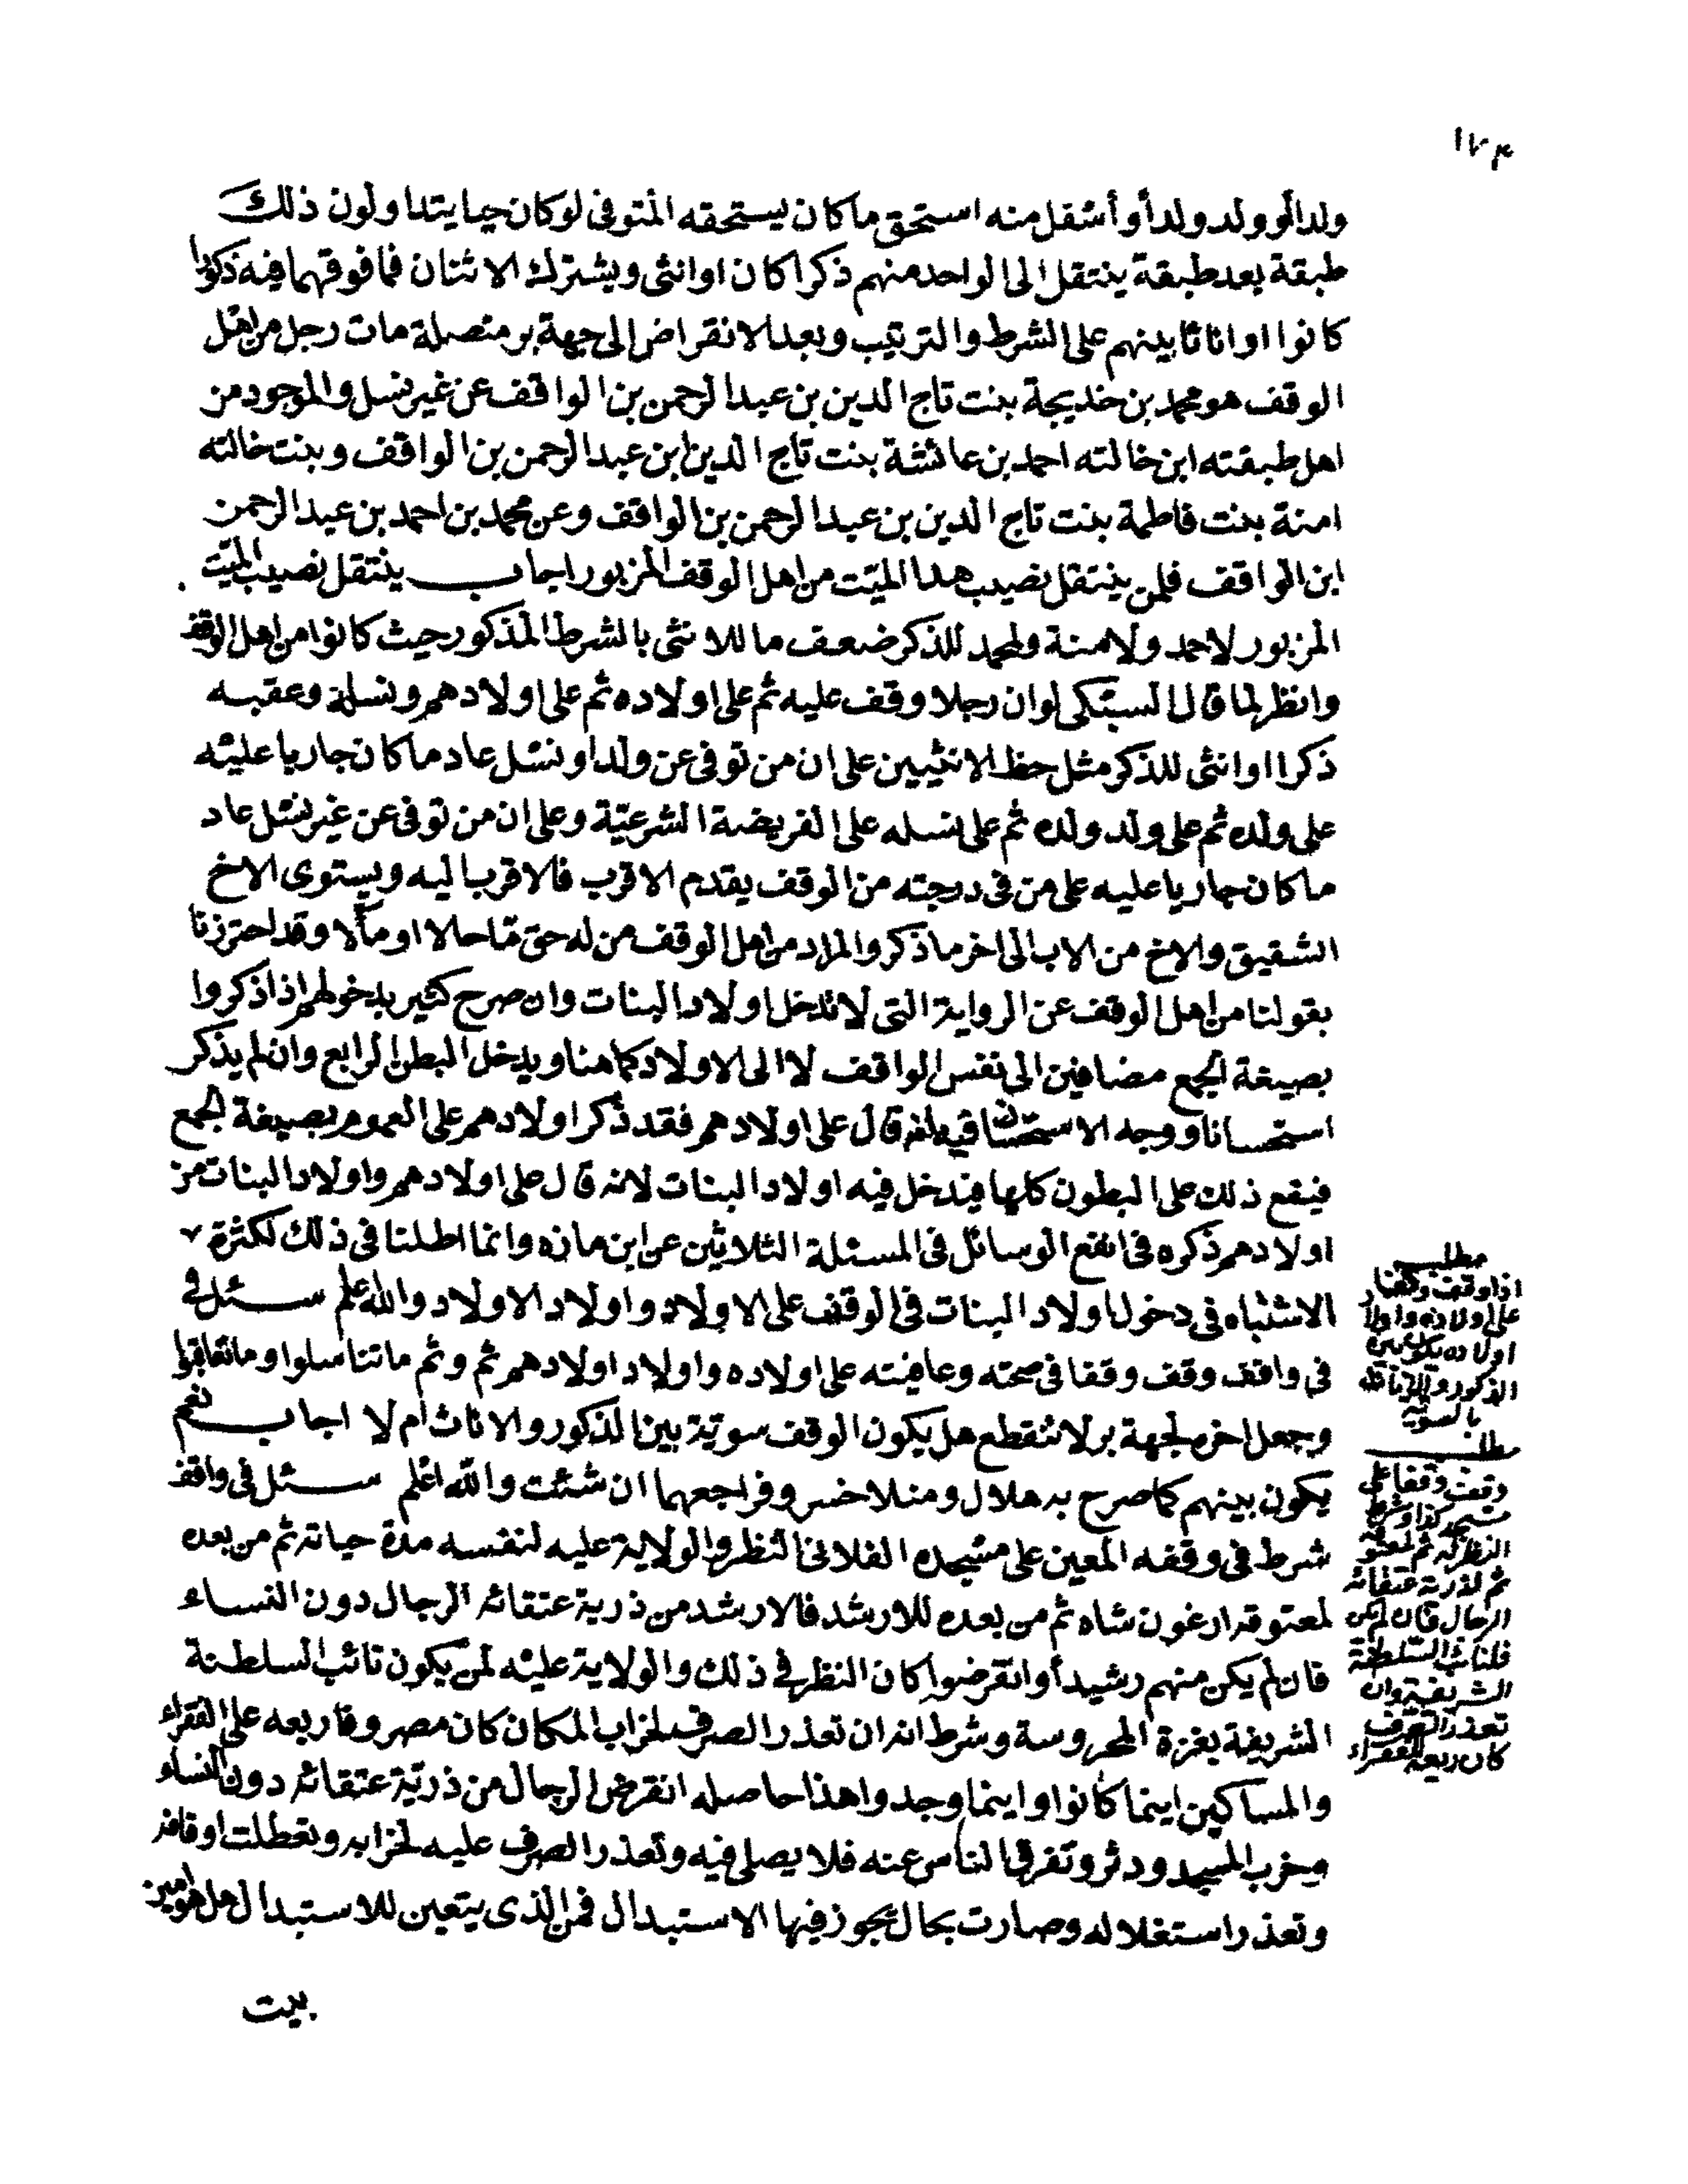 ١٧٤
ولدا أو ولد ولد أو أسفل منه استحق ما كان يستحقه المتوفى لو كان حيا يتداولون ذلك
طبقة بعد طبقة ينتقل الى الواحد منهم ذكرا كان او انثى ويشترك الاثنان فما فوقهما فيه ذكورا
كانوا او اناثا بينهم على الشرط والترتيب وبعد الانقراض الى جهة بر متصلة مات رجل من اهل
الوقف هو محمد بن خديجة بنت تاج الدين بن عبد الرحمن بن الواقف عن غير نسل والموجود من
اهل طبقته ابن خالته احمد بن عائشة بنت تاج الدين ابن عبد الرحمن بن الواقف وبنت خالته
امنة بنت فاطمة بنت تاج الدين بن عبد الرحمن بن الواقف وعن محمد بن احمد بن عبد الرحمن
ابن الواقف فلمن ينتقل نصيب هذا الميت من اهل الوقف المزبور اجاب ينتقل نصيب الميت
المزبور لاحمد ولامنة ولمحمد للذكر ضعف ما للانثى بالشرط المذكور حيث كانوا من اهل الوقف
وانظر لما قال السبكى لو ان رجلا وقف عليه ثم على اولاده ثم على اولادهم ونسله وعقبه
ذكرا او انثى للذكر مثل حظ الانثيين على ان من توفى عن ولد او نسل عاد ما كان جاريا عليه
على ولده ثم على ولد ولده ثم على نسله على الفريضة الشرعية وعلى ان من توفى عن غير نسل عاد
ما كان جاريا عليه على من فى درجته من الوقف يقدم الاقرب فالاقرب اليه ويستوى الاخ
الشقيق والاخ من الاب الى اخر ما ذكر والمراد من اهل الوقف من له حق ما حالا او مآلا وقد احترزنا
بقولنا من اهل الوقف عن الرواية التى لا تدخل اولاد البنات وان صرح كثير بدخولهم اذا ذكروا
بصيغة الجمع مضافين الى نفس الواقف لا الى الاولاد كما هنا ويدخل البطن الرابع وان لم يذكر
استحسانا ووجه الاستحسان فيه انه قال على اولادهم فقد ذكر اولادهم على العموم بصيغة الجمع
فيقع ذلك على البطون كلها فيدخل فيه اولاد البنات لانه قال على اولادهم واولاد البنات من
اولادهم ذكره فى انفع الوسائل فى المسئلة الثلاثين عن ابن مازه وانما اطلنا فى ذلك لكثرة
الاشتباه فى دخول اولاد البنات فى الوقف على الاولاد واولاد الاولاد والله اعلم سئل فى
فى واقف وقف وقفا فى صحته وعافيته على اولاده واولاد اولادهم ثم وثم ما تناسلوا وما تعاقبوا
وجعل اخره لجهة بر لا تنقطع هل يكون الوقف سوية بين الذكور والاناث ام لا اجاب نعم
يكون بينهم كما صرح به هلال ومنلا خسرو فراجعهما ان شئت والله اعلم سئل فى واقف
شرط فى وقفه المعين على مسجده الفلانى النظر والولاية عليه لنفسه مدة حياته ثم من بعده
لمعتوقه ارغون شاه ثم من بعده للارشد فالارشد من ذرية عتقائه الرجال دون النساء
فان لم يكن منهم رشيد أو انقرضوا كان النظر فى ذلك والولاية عليه لمن يكون نائب السلطنة
الشريفة بغزة المحروسة وشرط انه ان تعذر الصرف لخراب المكان كان مصروفا ريعه على الفقراء
والمساكين اينما كانوا واينما وجدوا هذا حاصله انقرض الرجال من ذرية عتقائه دون النساء
وخرب المسجد ودثر وتفرق الناس عنه فلا يصلى فيه وتعذر الصرف عليه لخرابه وتعطلت اوقافه
وتعذر استغلاله وصارت بحال يجوز فيها الاستبدال فمن الذى يتعين للاستبدال هل هو امين
بيت
مطلب
اذا وقف وقفا
على اولاده واولاد
اولاده يكون بين
الذكور والاناث
بالسوية
مطلب
وقف وقفا على
مسجد كذا وشرط
النظر له ثم لمعتوقه
ثم لذرية عتقائه
الرجال فان لم يكن
فلنائب السلطنة
الشريفة وان
تعذر الصرف
كان ريعه للفقراء